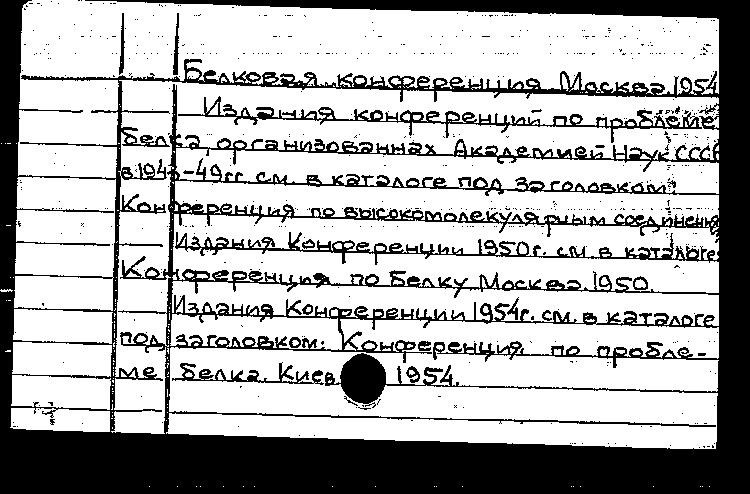 Белковая конференция Москва. 1954
Издания конференций по проблеме
белка, организованнах Академией Наук СССР
в 1943-49гг см. в каталоге под заголовком:
Конференция по высокомолекулярным соединения
Издания Конференции 1950г. см. в каталоге
Конференция по Белку Москва. 1950.
Издания Конференции 1954г. см. в каталоге
под заголовком: Конференция по пробле-
ме белка. Киев 1954.